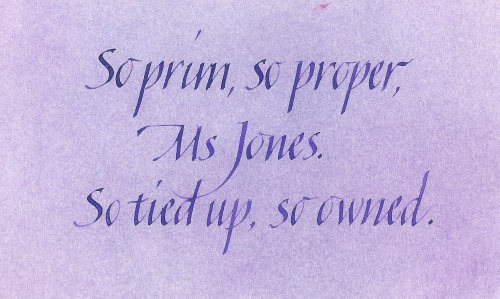 So prim, so proper,
Ms Jones.
So tied up, so owned.